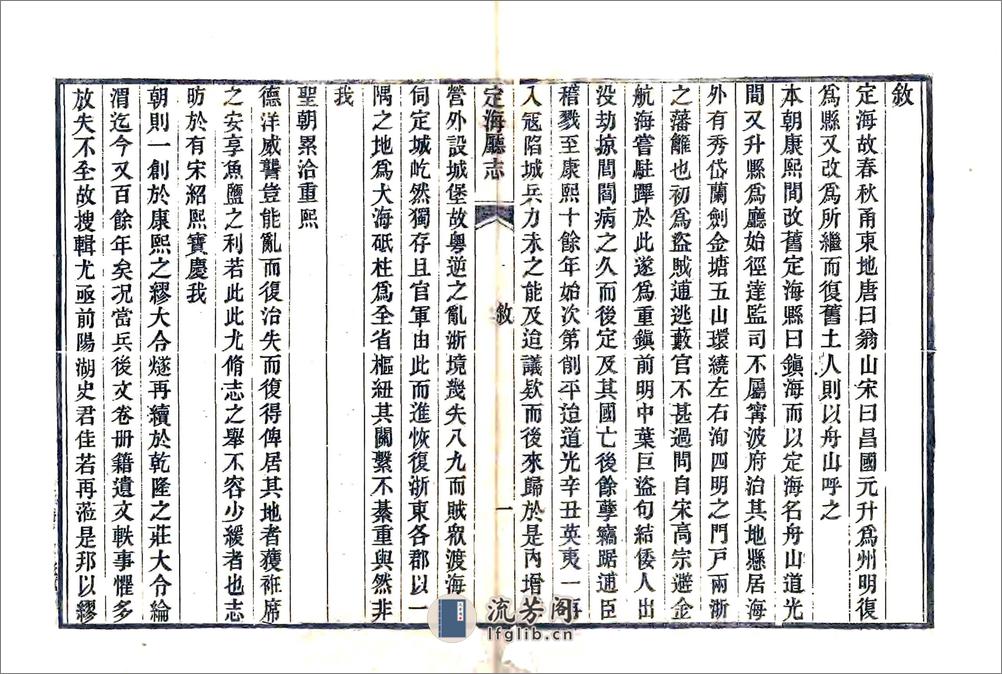 敘
定海故春秋甬東地唐曰翁山宋曰昌國元升為州明復
為縣又改為所繼而復舊土人則以舟山呼之
本朝康熙間改舊定海縣曰鎮海而以定海名舟山道光
間又升縣為廳始徑達監司不屬甯波府治其地懸居海
外有秀岱蘭劍金塘五山環繞左右洵四明之門戶兩浙
之藩籬也初為盜賊逋逃藪官不甚過問自宋高宗避金
航海嘗駐蹕於此遂為重鎮前明中葉巨盜句結倭人出
没劫掠閭閻病之久而後定及其國亡後餘孽竊踞逋臣
稽戮至康熙十餘年始次第創平迨道光辛丑英夷一再
入寇陷城兵力未之能及迨議欵而後來歸於是內增
定海廳志
敘
一
營外設城堡故粵逆之亂浙境幾失八九而賊叡渡海
伺定城屹然獨存且官軍由此而進恢復浙東各郡以一
隅之地為大海砥柱為全省樞紐其關繫不綦重與然非
我
聖朝累洽重熙
德洋威讋豈能亂而復治失而復得俾居其地者獲袵席
之安享魚鹽之利若此此尤脩志之舉不容少緩者也志
昉於有宋紹熙寶慶我
朝則一創於康熙之繆大令燧再續於乾隆之莊大令綸
渭迄今又百餘年矣况當兵後文卷册籍遺文軼事懼多
放失不全故搜輯尤亟前陽湖史君佳若再蒞是邦以繆
流芳阁
lfglib.cn